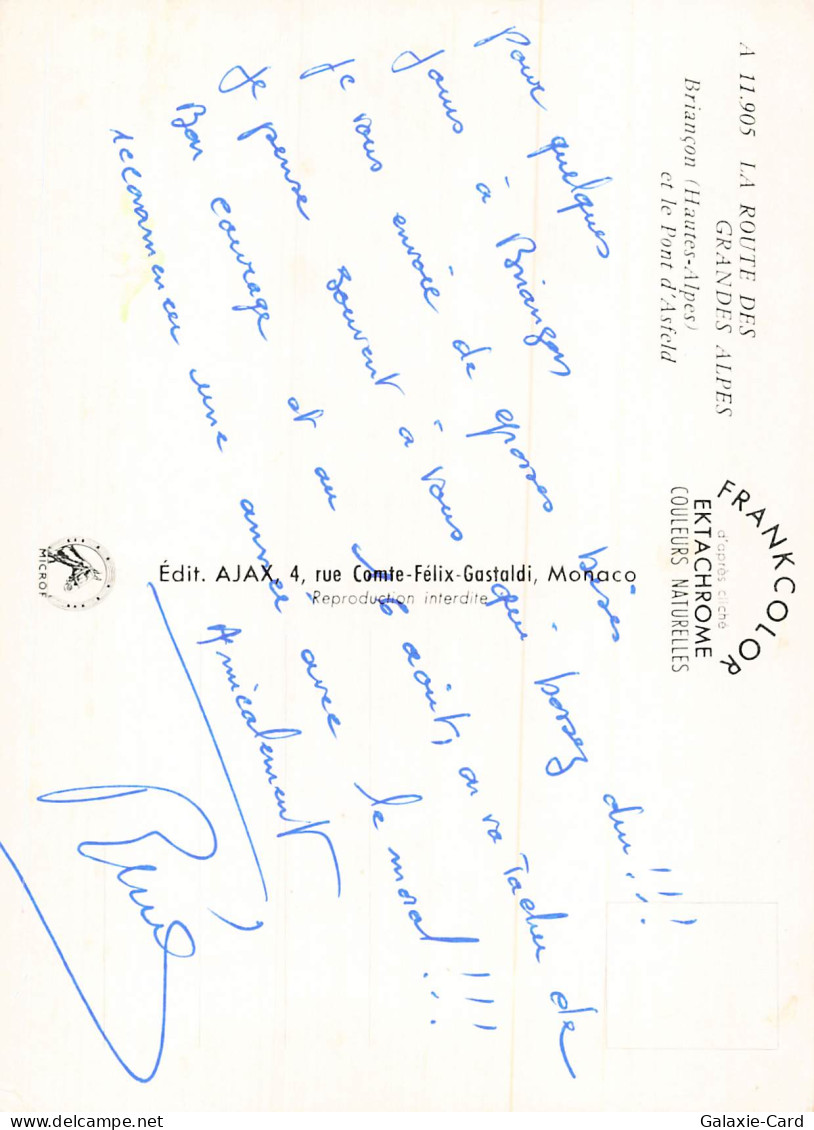 A 11.905 LA ROUTE DES
GRANDES ALPES
Briançon (Hautes-Alpes)
et le Pont d'Asfeld
FRANKCOLOR
d'après cliché
EKTACHROME
COULEURS NATURELLES
Pour quelques
jours à Briançon
je vous envoie de grosses bises
je pense souvent à vous qui bossez dur!!!
Bon courage et au 16 août, on va tacher de
recommencer une année avec le moral!!!
Amicalement
Édit. AJAX, 4, rue Comte-Félix-Gastaldi, Monaco
Reproduction interdite
MICROF
Galaxie-Card